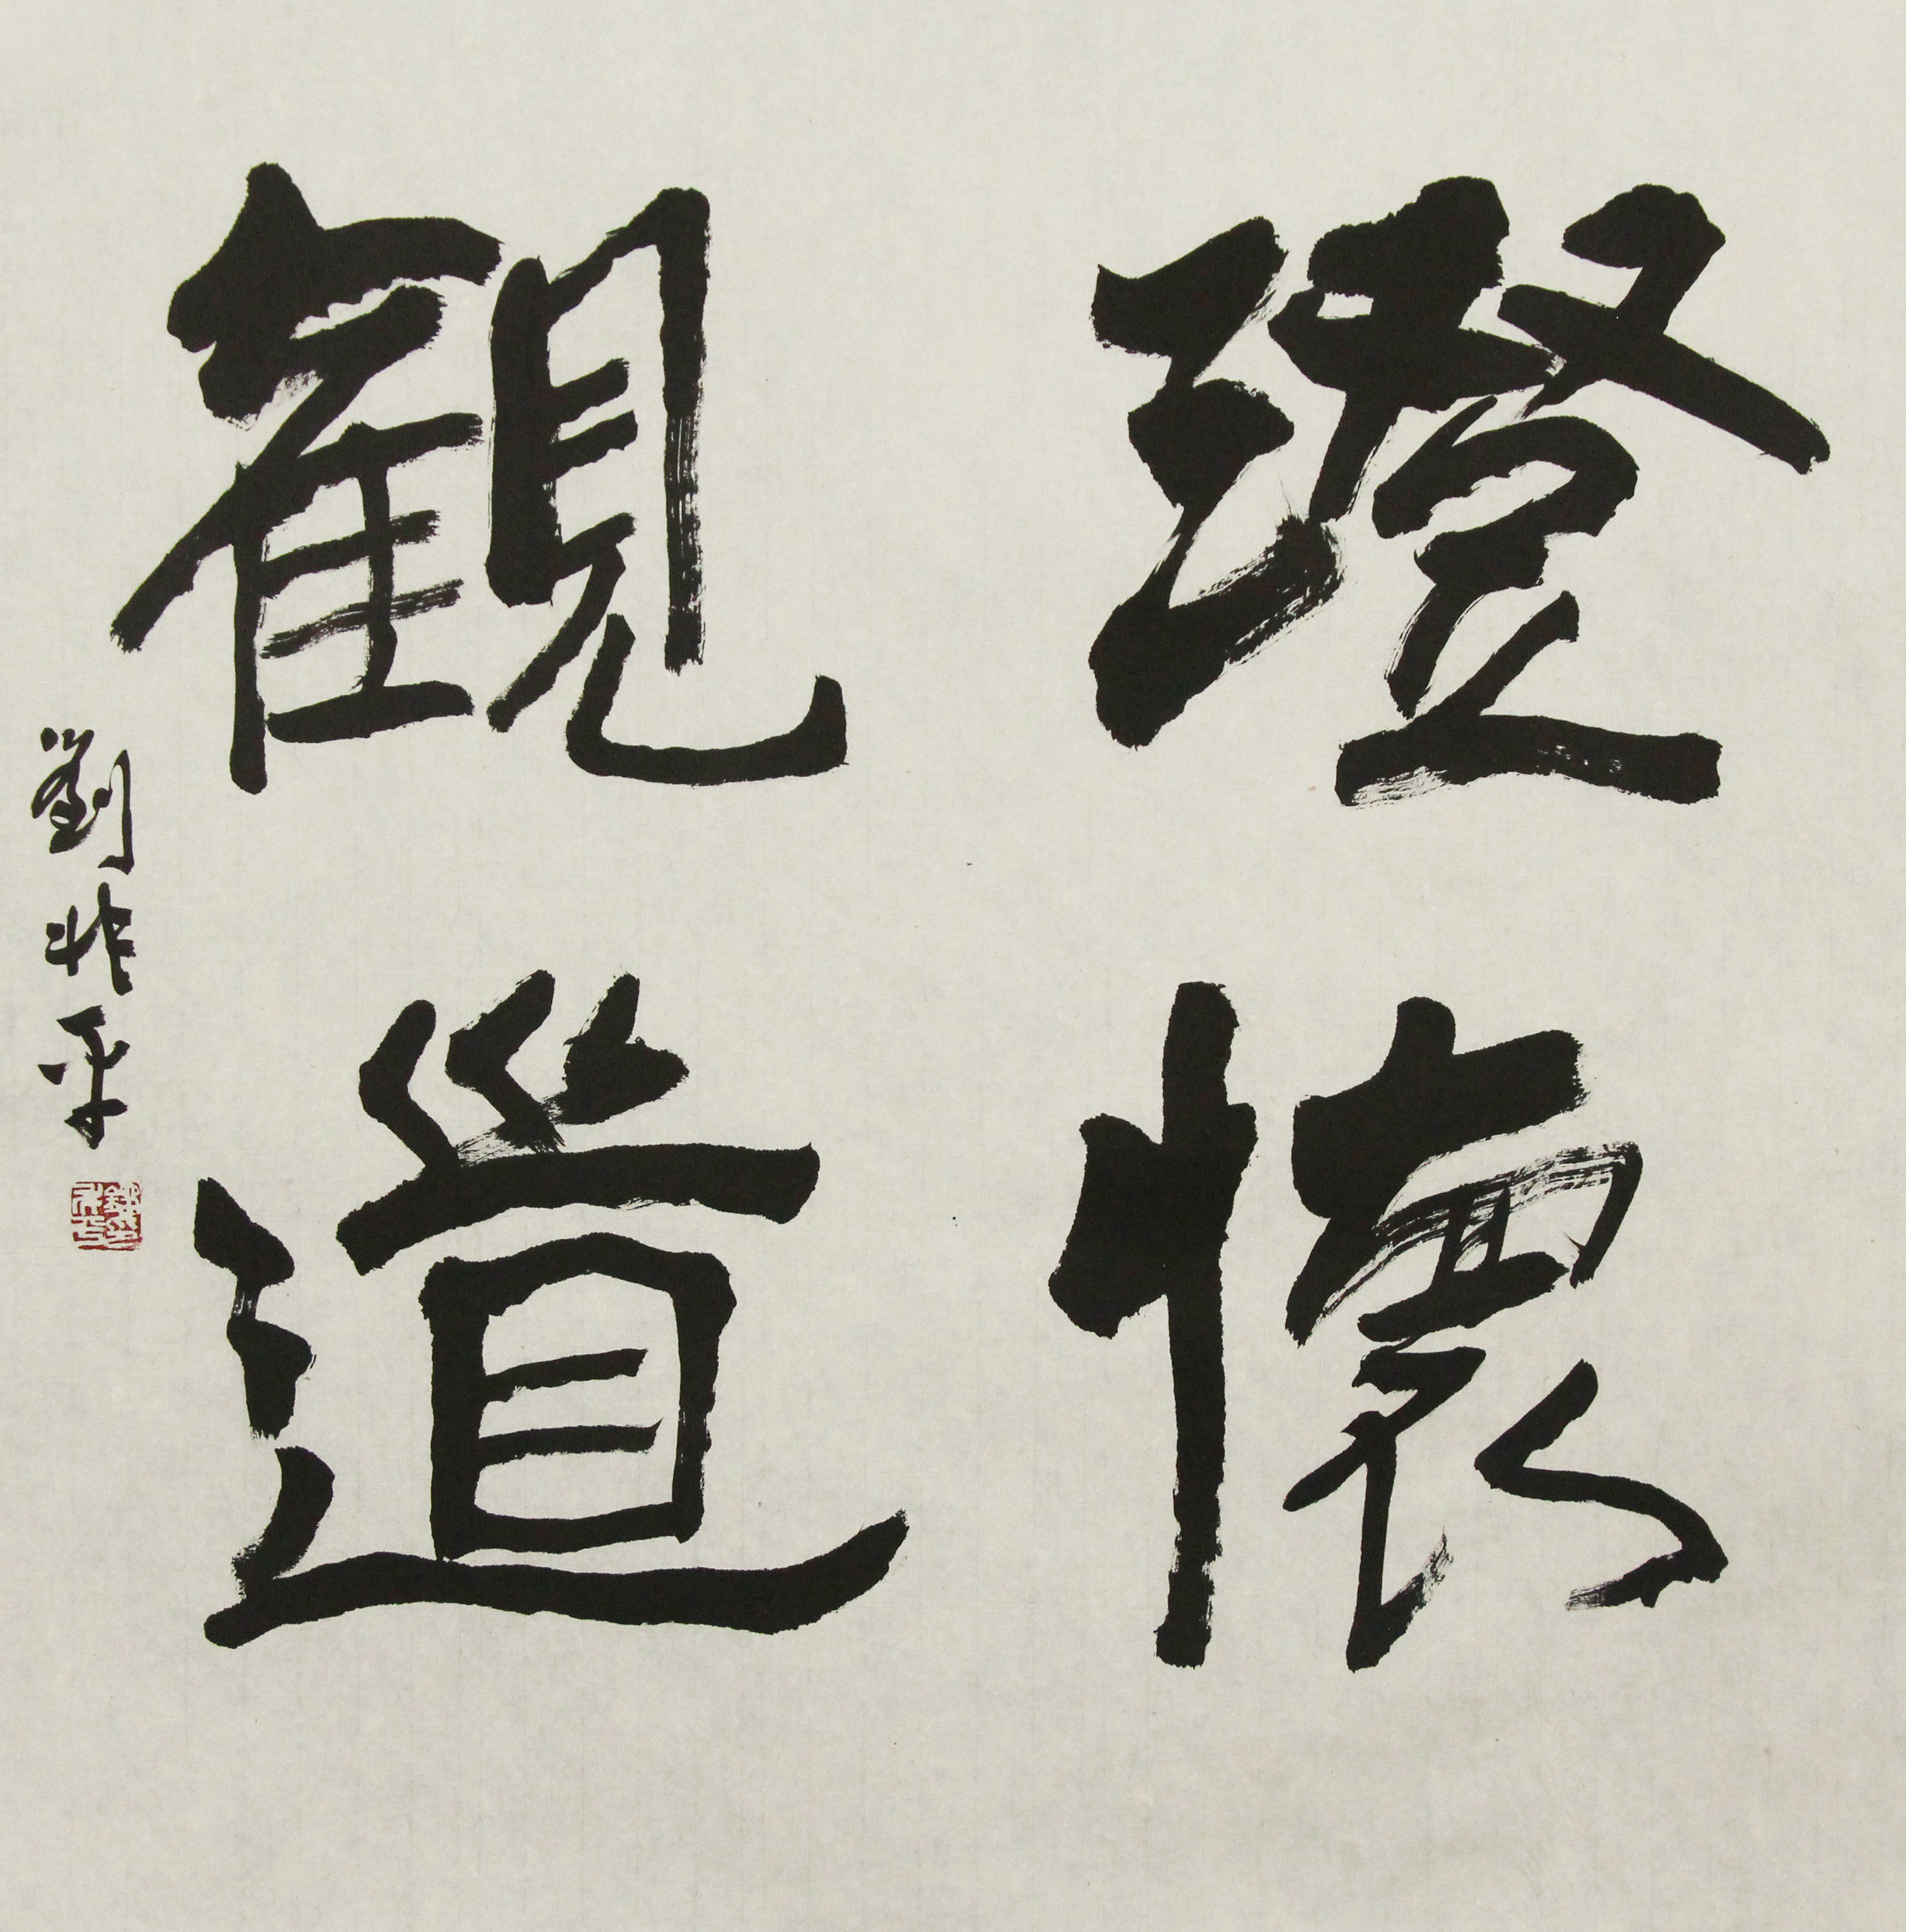 澄懷
觀道
劉铁平